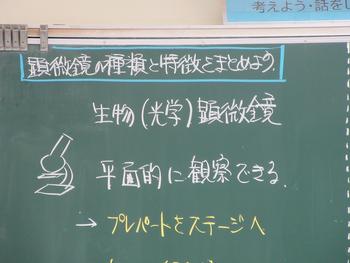 考えよう・話をし
顕微鏡の種類と特徴をまとめよう
生物(光学)顕微鏡
平面的に観察できる.
→ プレパートをステージへ